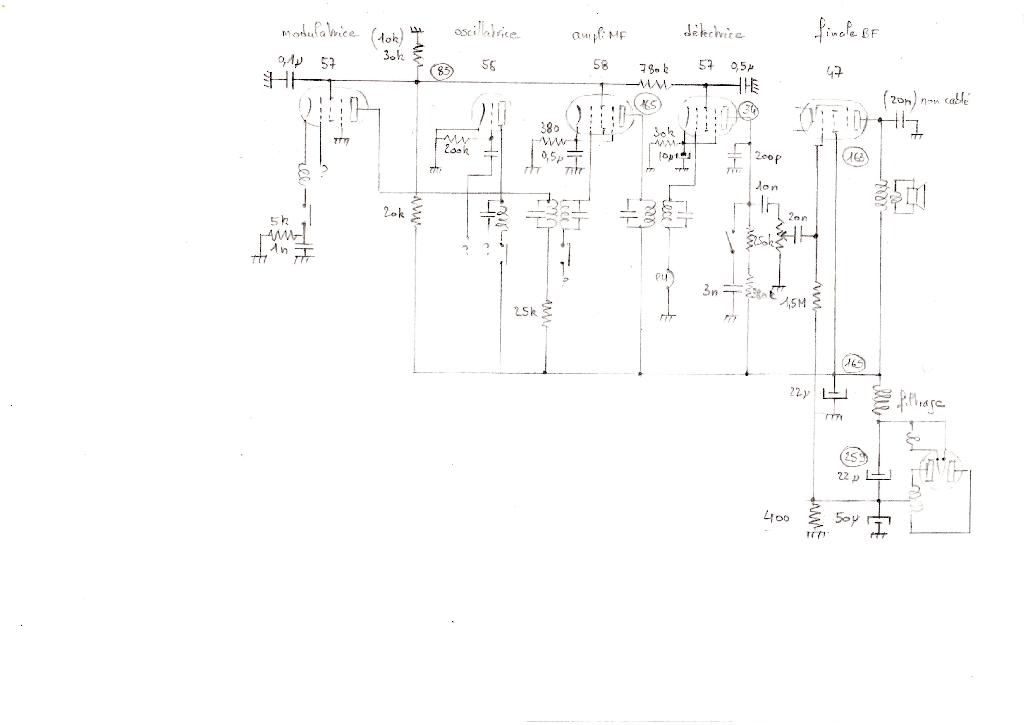 modulatrice (10k) oscillatrice ampli MF détectrice finale BF
30k
0,1µ 57 85 56 58 780k 57 0,5µ 47
165 34 (20n) non cablé
380 30k
200k 0,5µ 10µ 200p 163
?
10n
20k 20n
5k 250k
1n ? ? ?
PU
3n
25k 1,5M
165
22µ
filtrage
259
22µ
400 50µ